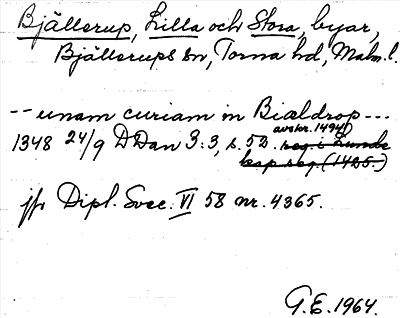 Bjällerup, Lilla och Stora, byar,
Bjällerups sn, Torna hd, Malm. l.
-- unam curiam in Bialdrop ---
avskr. 1494)
1348 24/9 DDan 3:3, s. 52. reg i Lunde
kap reg. (1425.)
jfr Dipl. Svec. VI 58 nr. 4365.
G.E. 1964.